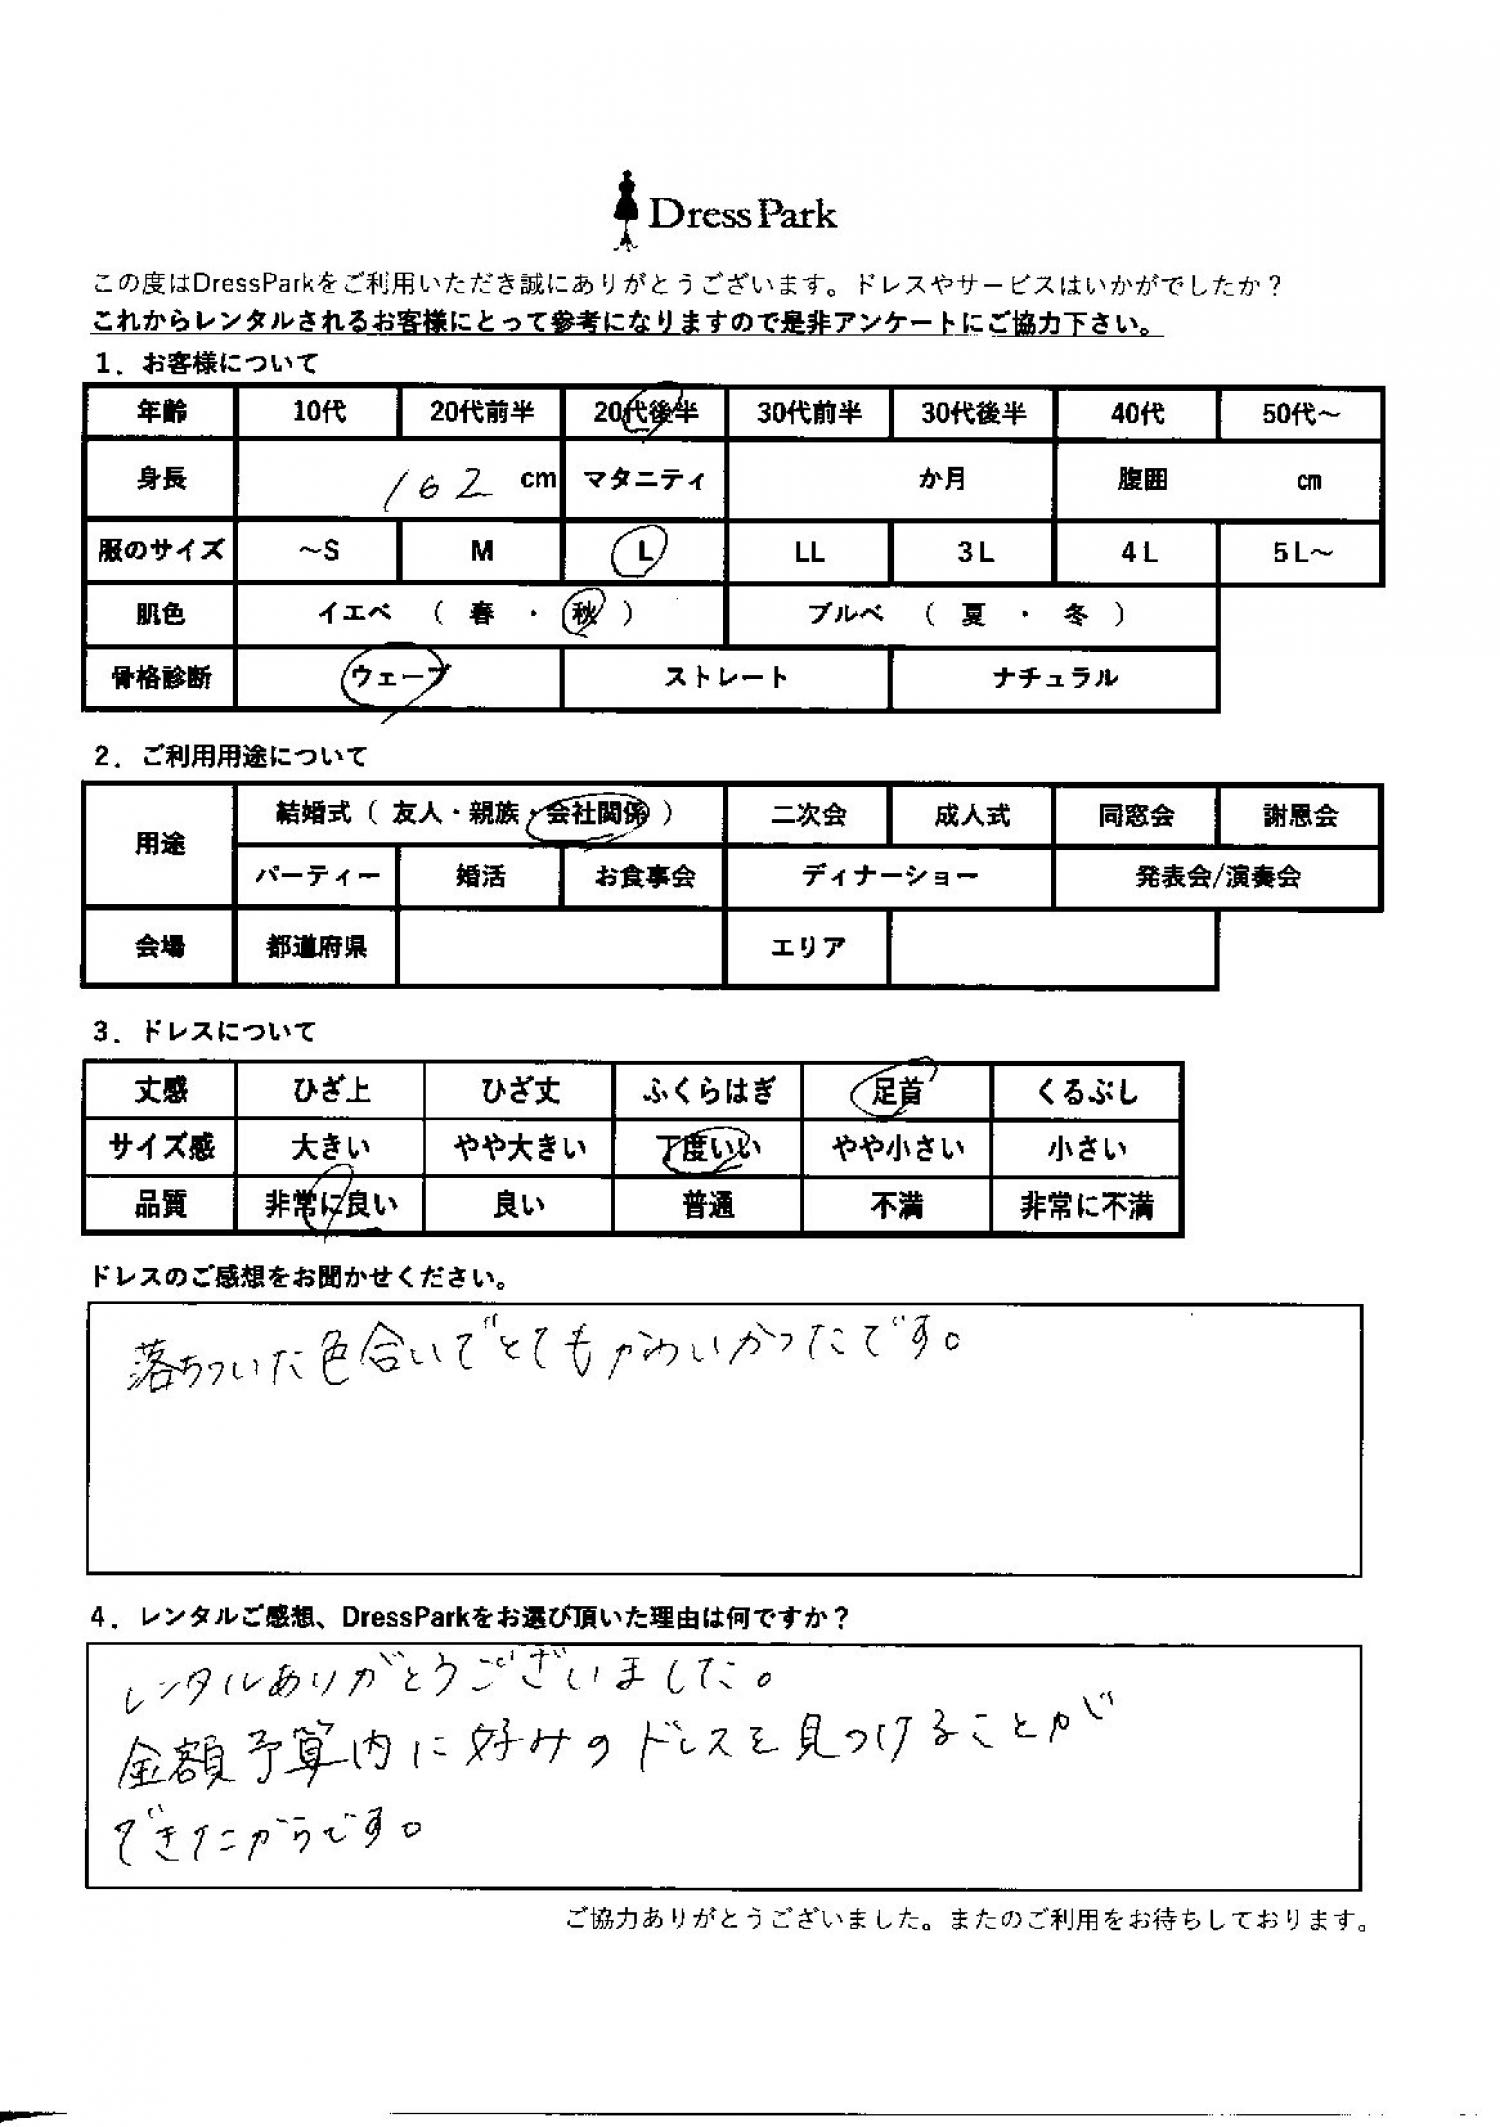 DressPark
この度はDressParkをご利用いただき誠にありがとうございます。ドレスやサービスはいかがでしたか？
これからレンタルされるお客様にとって参考になりますので是非アンケートにご協力下さい。
1．お客様について
年齢 10代 20代前半 20代後半 30代前半 30代後半 40代 50代～
身長 162 cm マタニティ か月 腹囲 cm
服のサイズ ～S M L LL 3L 4L 5L～
肌色 イエベ （ 春 ・ 秋 ） ブルベ （ 夏 ・ 冬 ）
骨格診断 ウェーブ ストレート ナチュラル
2．ご利用用途について
用途 結婚式（ 友人・親族・会社関係 ） 二次会 成人式 同窓会 謝恩会
パーティー 婚活 お食事会 ディナーショー 発表会/演奏会
会場 都道府県 エリア
3．ドレスについて
丈感 ひざ上 ひざ丈 ふくらはぎ 足首 くるぶし
サイズ感 大きい やや大きい 丁度いい やや小さい 小さい
品質 非常に良い 良い 普通 不満 非常に不満
ドレスのご感想をお聞かせください。
落ちついた色合いでとてもかわいかったです。
4．レンタルご感想、DressParkをお選び頂いた理由は何ですか？
レンタルありがとうございました。
金額予算内に好みのドレスを見つけることが
できたからです。
ご協力ありがとうございました。またのご利用をお待ちしております。